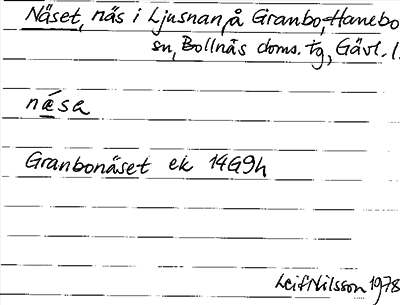 Näset, näs i Ljusnan, å Granbo, Hanebo
sn, Bollnäs doms. tg, Gävl. l.
nǽsa
Granbonäset ek 14G9h
Leif Nilsson 1978